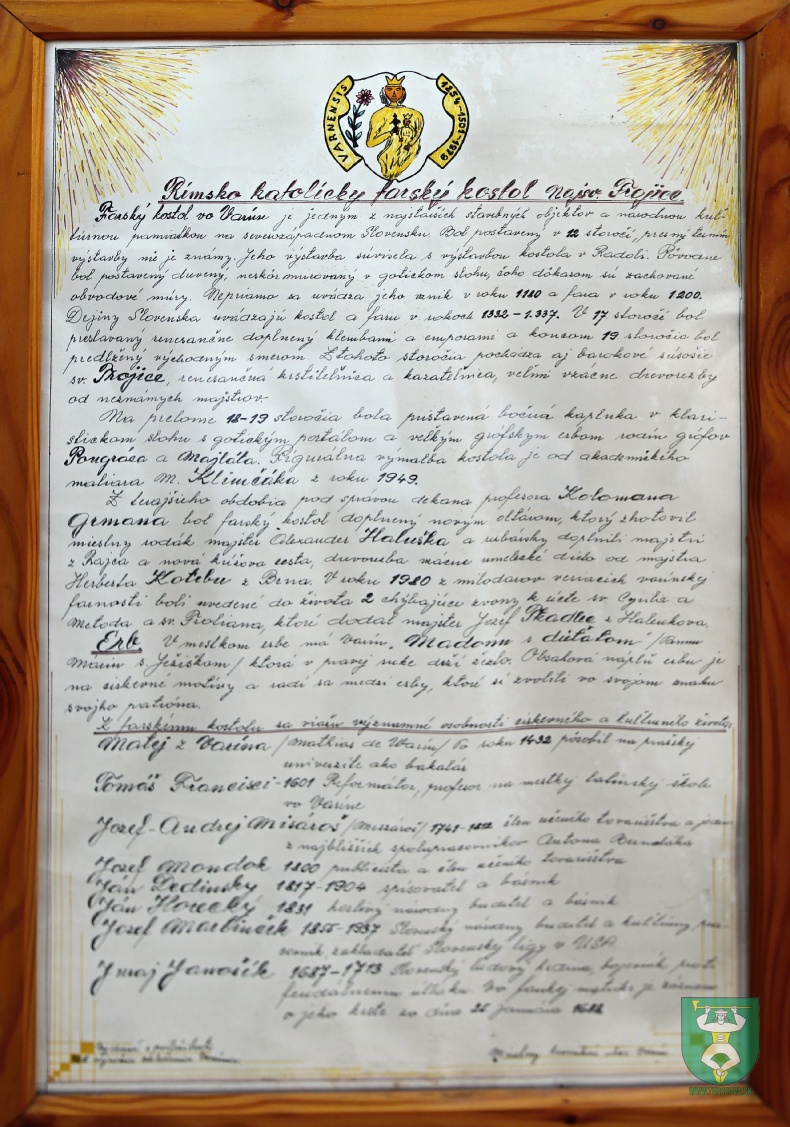 VARNENSIS
1254-1501-1979
Rímsko katolícky farský kostol Najsv. Trojice.
Farský kostol vo Varíne je jedným z najstarších stavebných objektov a národnou kul-
túrnou pamiatkou na severozápadnom Slovensku. Bol postavený v 12 storočí, presný termín
výstavby nie je známy. Jeho výstavba súvisela s výstavbou kostola v Radoli. Pôvodne
bol postavený drevený, neskôr murovaný v gotickom slohu, čoho dôkazom sú zachované
obvodové múry. Nepriamo sa uvádza jeho vznik v roku 1180 a fara v roku 1200.
Dejiny Slovenska uvádzajú kostol a faru v rokoch 1332-1.337. V 17 storočí bol
prestavaný renesančne doplnený klembami a emporami a koncom 19 storočia bol
predlžený východným smerom. Z tohoto storočia pochádza aj barokové súsošie
sv. Trojice, renesančná krstiteľnica a kazateľnica, veľmi vzácne drevorezby
od neznámych majstrov.
Na prelome 18-19 storočia bola pristavená bočná kaplnka v klasi-
stickom slohu s gotickým portálom a veľkým grófskym erbom rodín grófov
Pongráca a Majláta. Figurálna výmaľba kostola je od akademického
maliara M. Klimčáka z roku 1949.
Z terajšieho obdobia pod správou dekana profesora Kolomana
Grmana bol farský kostol doplnený novým oltárom, ktorý zhotovil
miestny rodák majster Alexander Haluška a rezbársky doplnili majstri
z Rajca a nová krížová cesta, drevorezba vzácne umelecké dielo od majstra
Herberta Kotebu z Brna. V roku 1980 z milodarov veriacich varínskej
farnosti boli uvedené do života 2 chýbajúce zvony k úcte sv. Cyrila a
Metoda a sv. Floriana, ktoré dodal majster Jozef Tkadlec z Halenkova.
Erb. V mestkom erbe má Varín "Madonu s dieťaťom" /Pannu
Máriu s Ježiškom/ ktorá v pravej ruke drží žezlo. Obsahová náplň erbu je
na cirkevné motívy a radí sa medzi erby, ktoré si zvolili vo svojom znaku
svojho patróna.
K farskému kostolu sa viažu významné osobnosti cirkevného a kultúrneho života.
Matej z Varína /Mathias de Warin/ Po roku 1432 pôsobil na pražskej
univerzite ako bakalár
Tomáš Francisci - 1601 Reformátor, profesor na mestkej latinskej škole
vo Varíne
Jozef-Andrej Mésároš /Meszároš/ 1741-18 člen učeného tovarišstva a jeden
z najbližších spolupracovníkov Antona Bernoláka
Jozef Mondok 1800 publicista a člen učeného tovarišstva
Ján Dedinský 1817-1904 spisovateľ a básnik
Ján Horecký 1831 horlivý národný buditeľ a básnik
Jozef Martinček 1855-1937 Slovenský národný buditeľ a kultúrny pra-
covník, zakladateľ Slovenskej ligy v USA
Juraj Jánošík 1687-1713 Slovenský ľudový hrdina, bojovník proti
feudálnemu útlaku. Vo farskej matrike je záznam
o jeho krste zo dňa 25 januára 1688